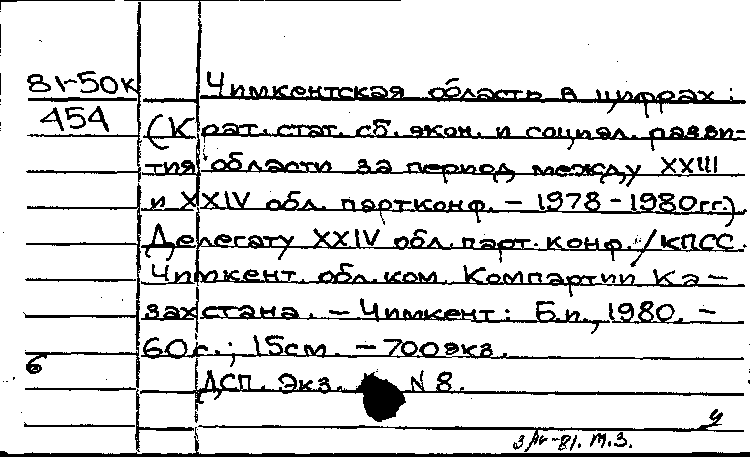 81-50к Чимкентская область в цифрах:
454 (Крат. стат. сб. экон. и социал. разви-
тия области за период между XXIII
и XXIV обл. партконф. - 1978-1980гг.)
Делегату XXIV обл. парт. конф. / КПСС.
Чимкент. обл. ком. Компартии Ка-
захстана. - Чимкент: Б.и., 1980. -
60с.; 15см. - 700экз.
6 ДСП. Экз. N 8.
ч
3/IV-81. М.З.